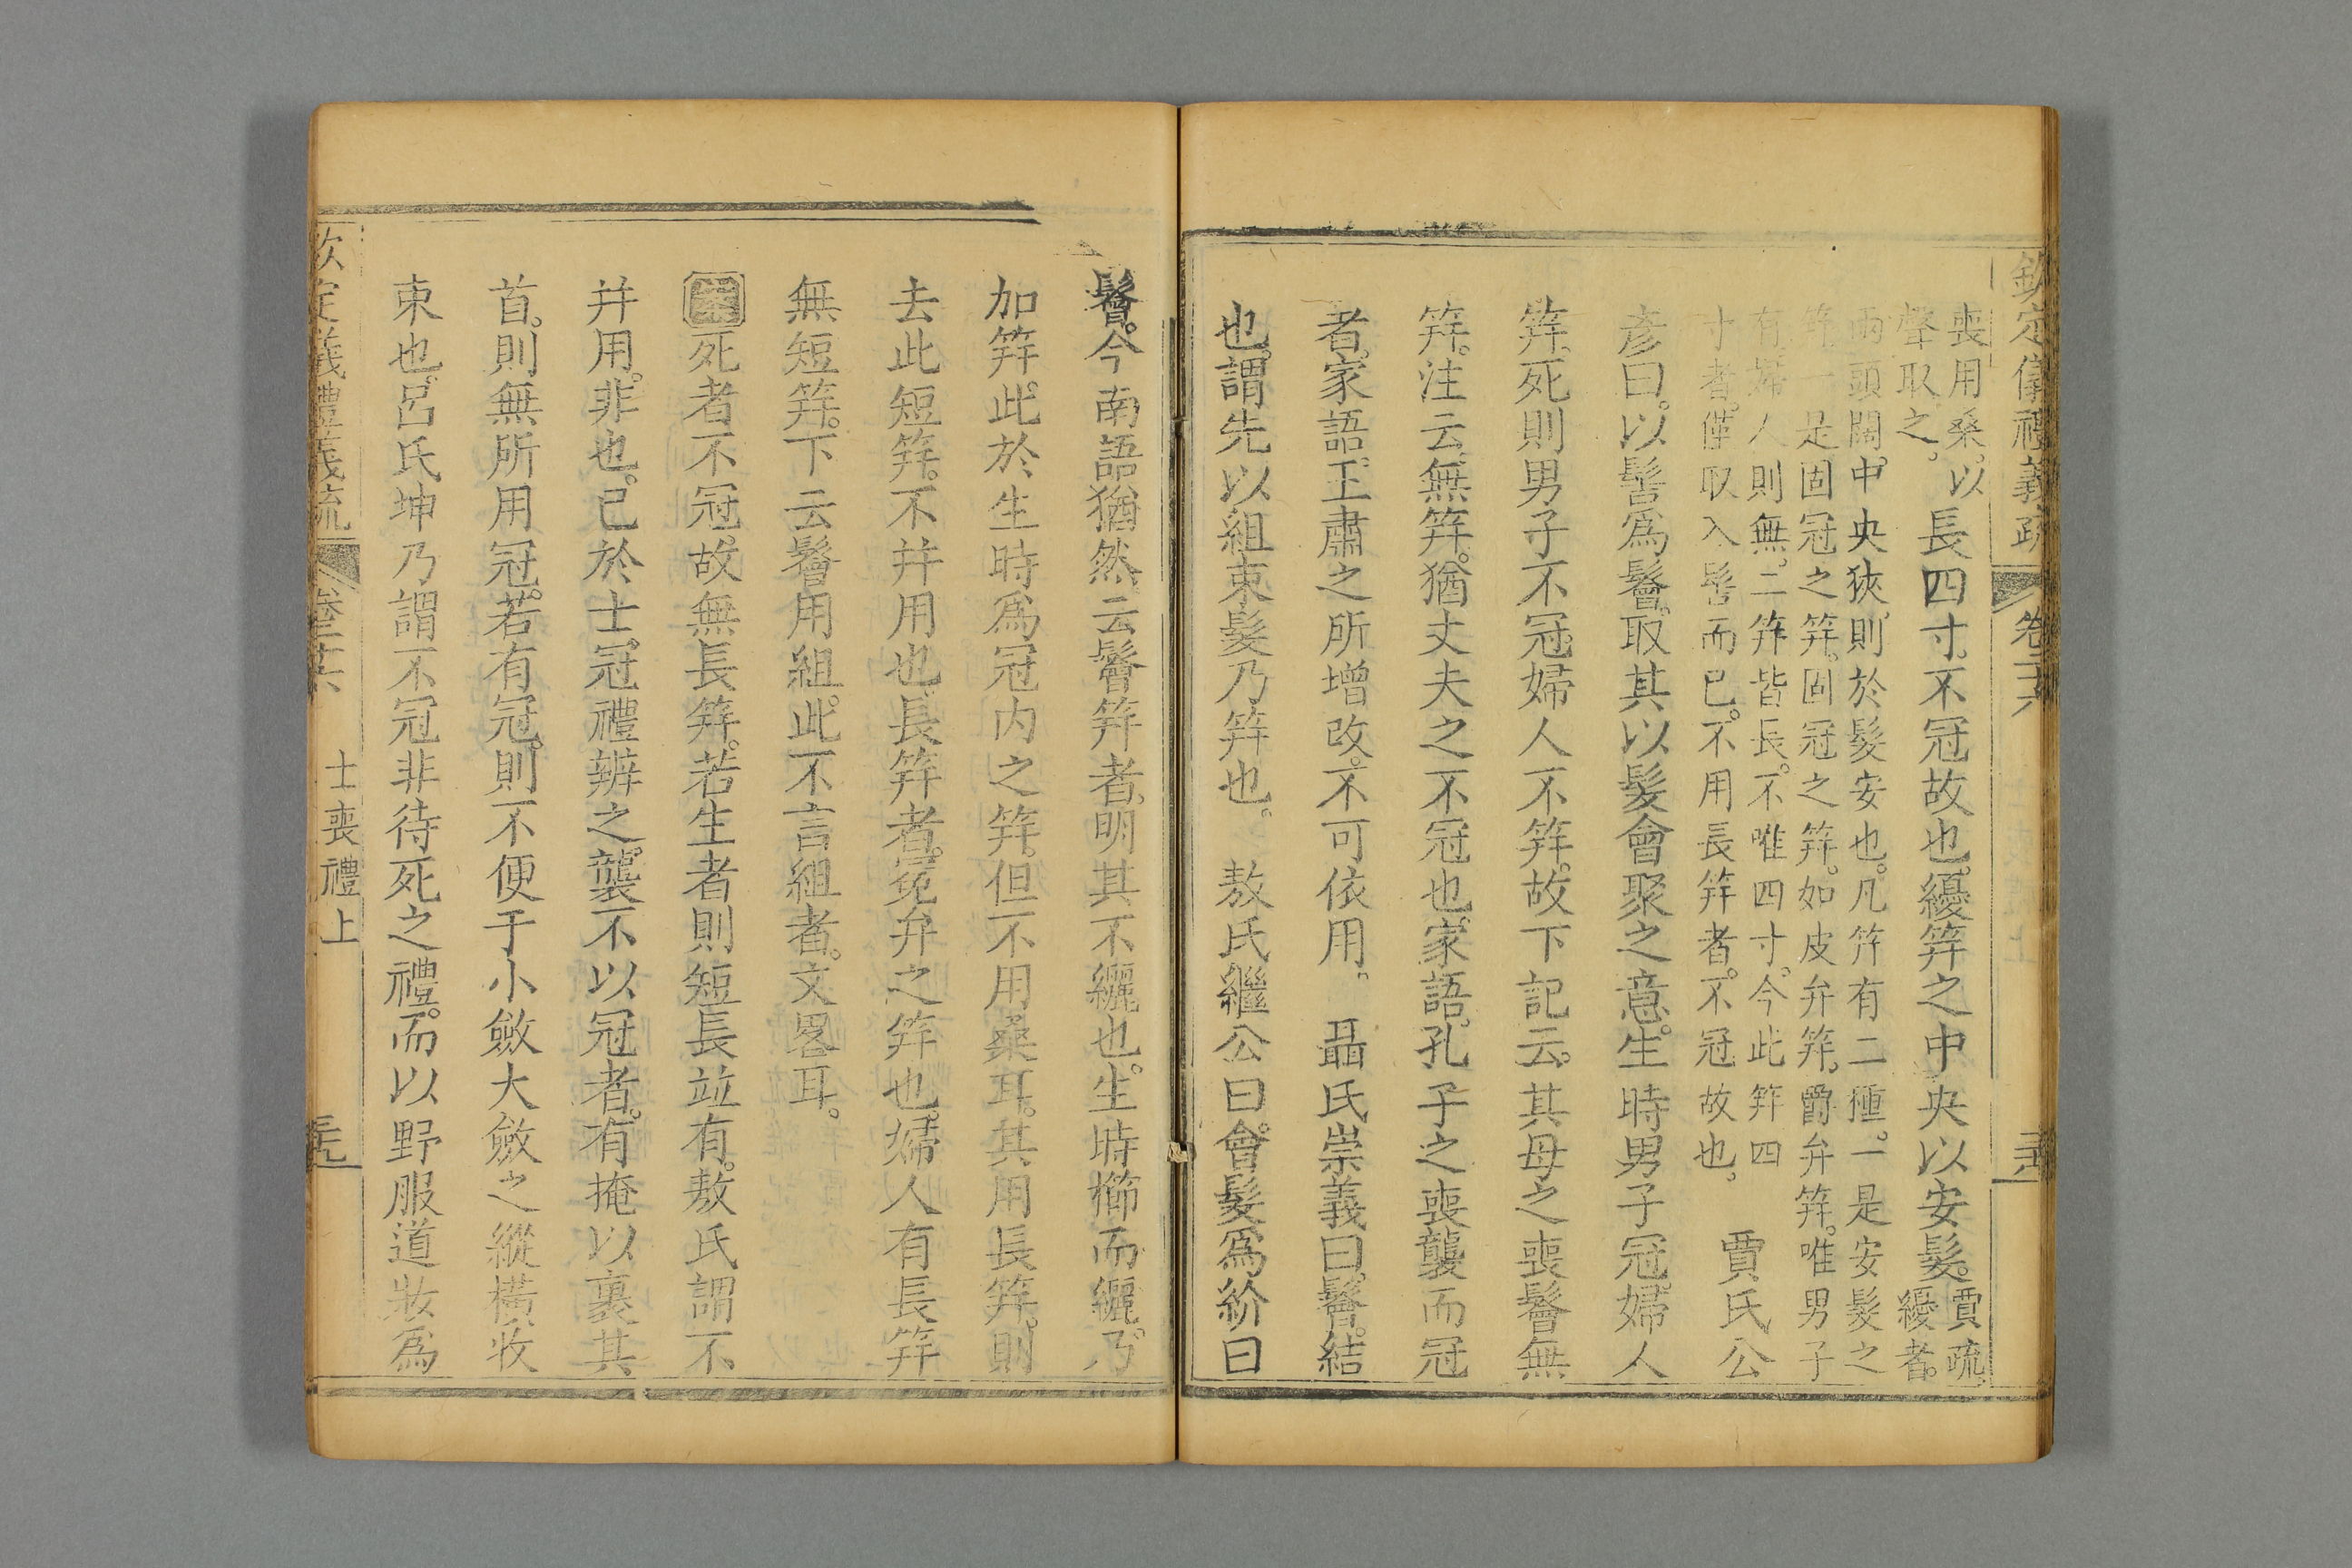 欽定儀禮義疏 卷二十六
喪用桑以
聲取之
長四寸不冠故也纋笄之中央以安髮
賈疏
纋者
兩頭闊中央狹則於髮安也凡笄有二種一是安髮之
笄一是固冠之笄固冠之笄如皮弁笄爵弁笄唯男子
有婦人則無二笄皆長不唯四寸今此笄四
寸者僅取入髻而已不用長笄者不冠故也
賈氏公
彥曰以髻爲鬠取其以髮會聚之意生時男子冠婦人
笄死則男子不冠婦人不笄故下記云其母之喪鬠無
笄注云無笄猶丈夫之不冠也家語孔子之喪襲而冠
者家語王肅之所增改不可依用 聶氏崇義曰鬠結
也謂先以組束髮乃笄也 敖氏繼公曰會髮爲紒曰
鬠今南語猶然云鬠笄者明其不纚也生時櫛而纚乃
加笄此於生時爲冠內之笄但不用桑耳其用長笄則
去此短笄不并用也長笄者冕弁之笄也婦人有長笄
無短笄下云鬠用組此不言組者文畧耳
案死者不冠故無長笄若生者則短長竝有敖氏謂不
并用非也已於士冠禮辨之襲不以冠者有掩以裹其
首則無所用冠若有冠則不便于小斂大斂之縱橫收
束也呂氏坤乃謂不冠非待死之禮而以野服道妝爲
欽定儀禮義疏 卷二十六 士喪禮上